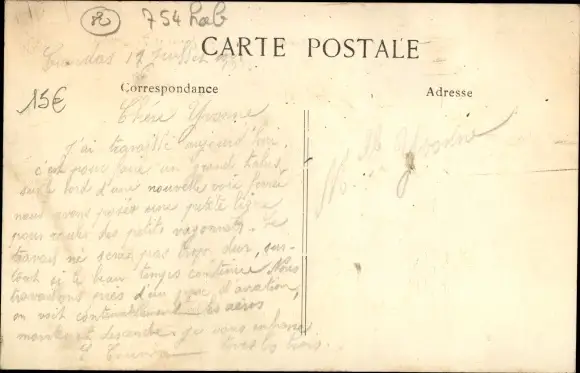 754 hab
CARTE POSTALE
17 juillet
15€
Correspondance
Adresse
Chère Yvonne
J'ai travaillé aujourd'hui,
c'est pour faire un grand talus,
sur le bord d'une nouvelle voie ferrée
nous avons posé une petite ligne
pour rouler des petits wagonnets. Le
travail ne sera pas trop dur, sur-
tout si le beau temps continue Nous
travaillons près d'un parc d'aviation,
on voit continuellement les aéros
monter et descendre. je vous embrasse
tous les trois.
Mlle Yvonne